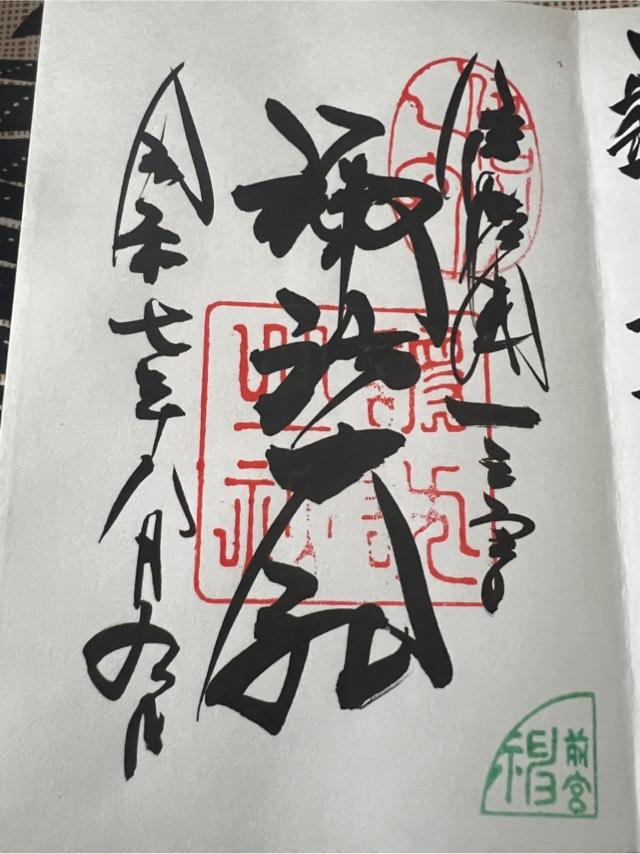 信濃國一之宮
諏訪大社
令和七年八月九日
前宮